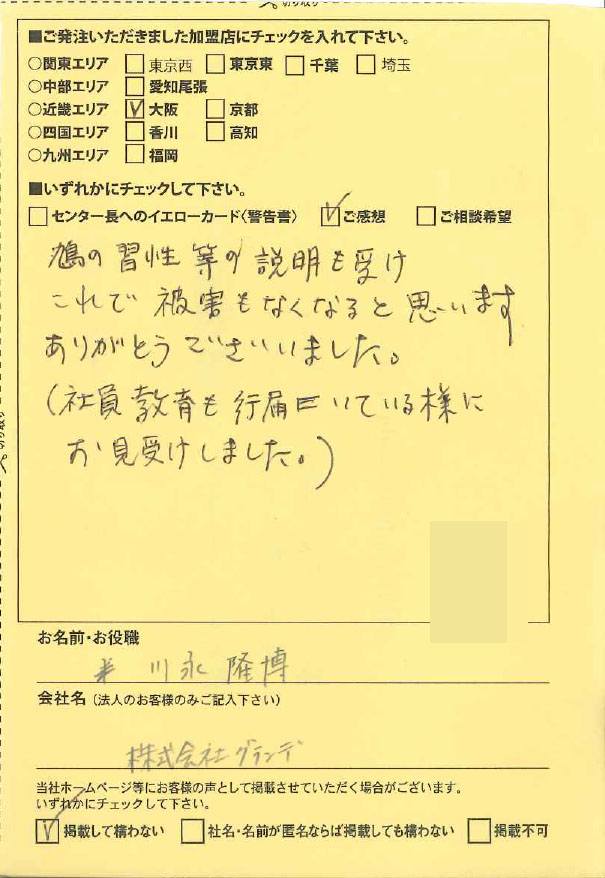 切り取り
■ご発注いただきました加盟店にチェックを入れて下さい。
○関東エリア □東京西 □東京東 □千葉 □埼玉
○中部エリア □愛知尾張
○近畿エリア ☑大阪 □京都
○四国エリア □香川 □高知
○九州エリア □福岡
■いずれかにチェックして下さい。
□センター長へのイエローカード〈警告書〉 ☑ご感想 □ご相談希望
鳩の習性等の説明も受け
これで被害もなくなると思います
ありがとうございいました。
(社員教育も行届いている様に
お見受けしました。)
切り取り
お名前・お役職
川永隆博
会社名(法人のお客様のみご記入下さい)
株式会社グランデ
当社ホームページ等にお客様の声として掲載させていただく場合がございます。
いずれかにチェックして下さい。
☑掲載して構わない □社名・名前が匿名ならば掲載しても構わない □掲載不可